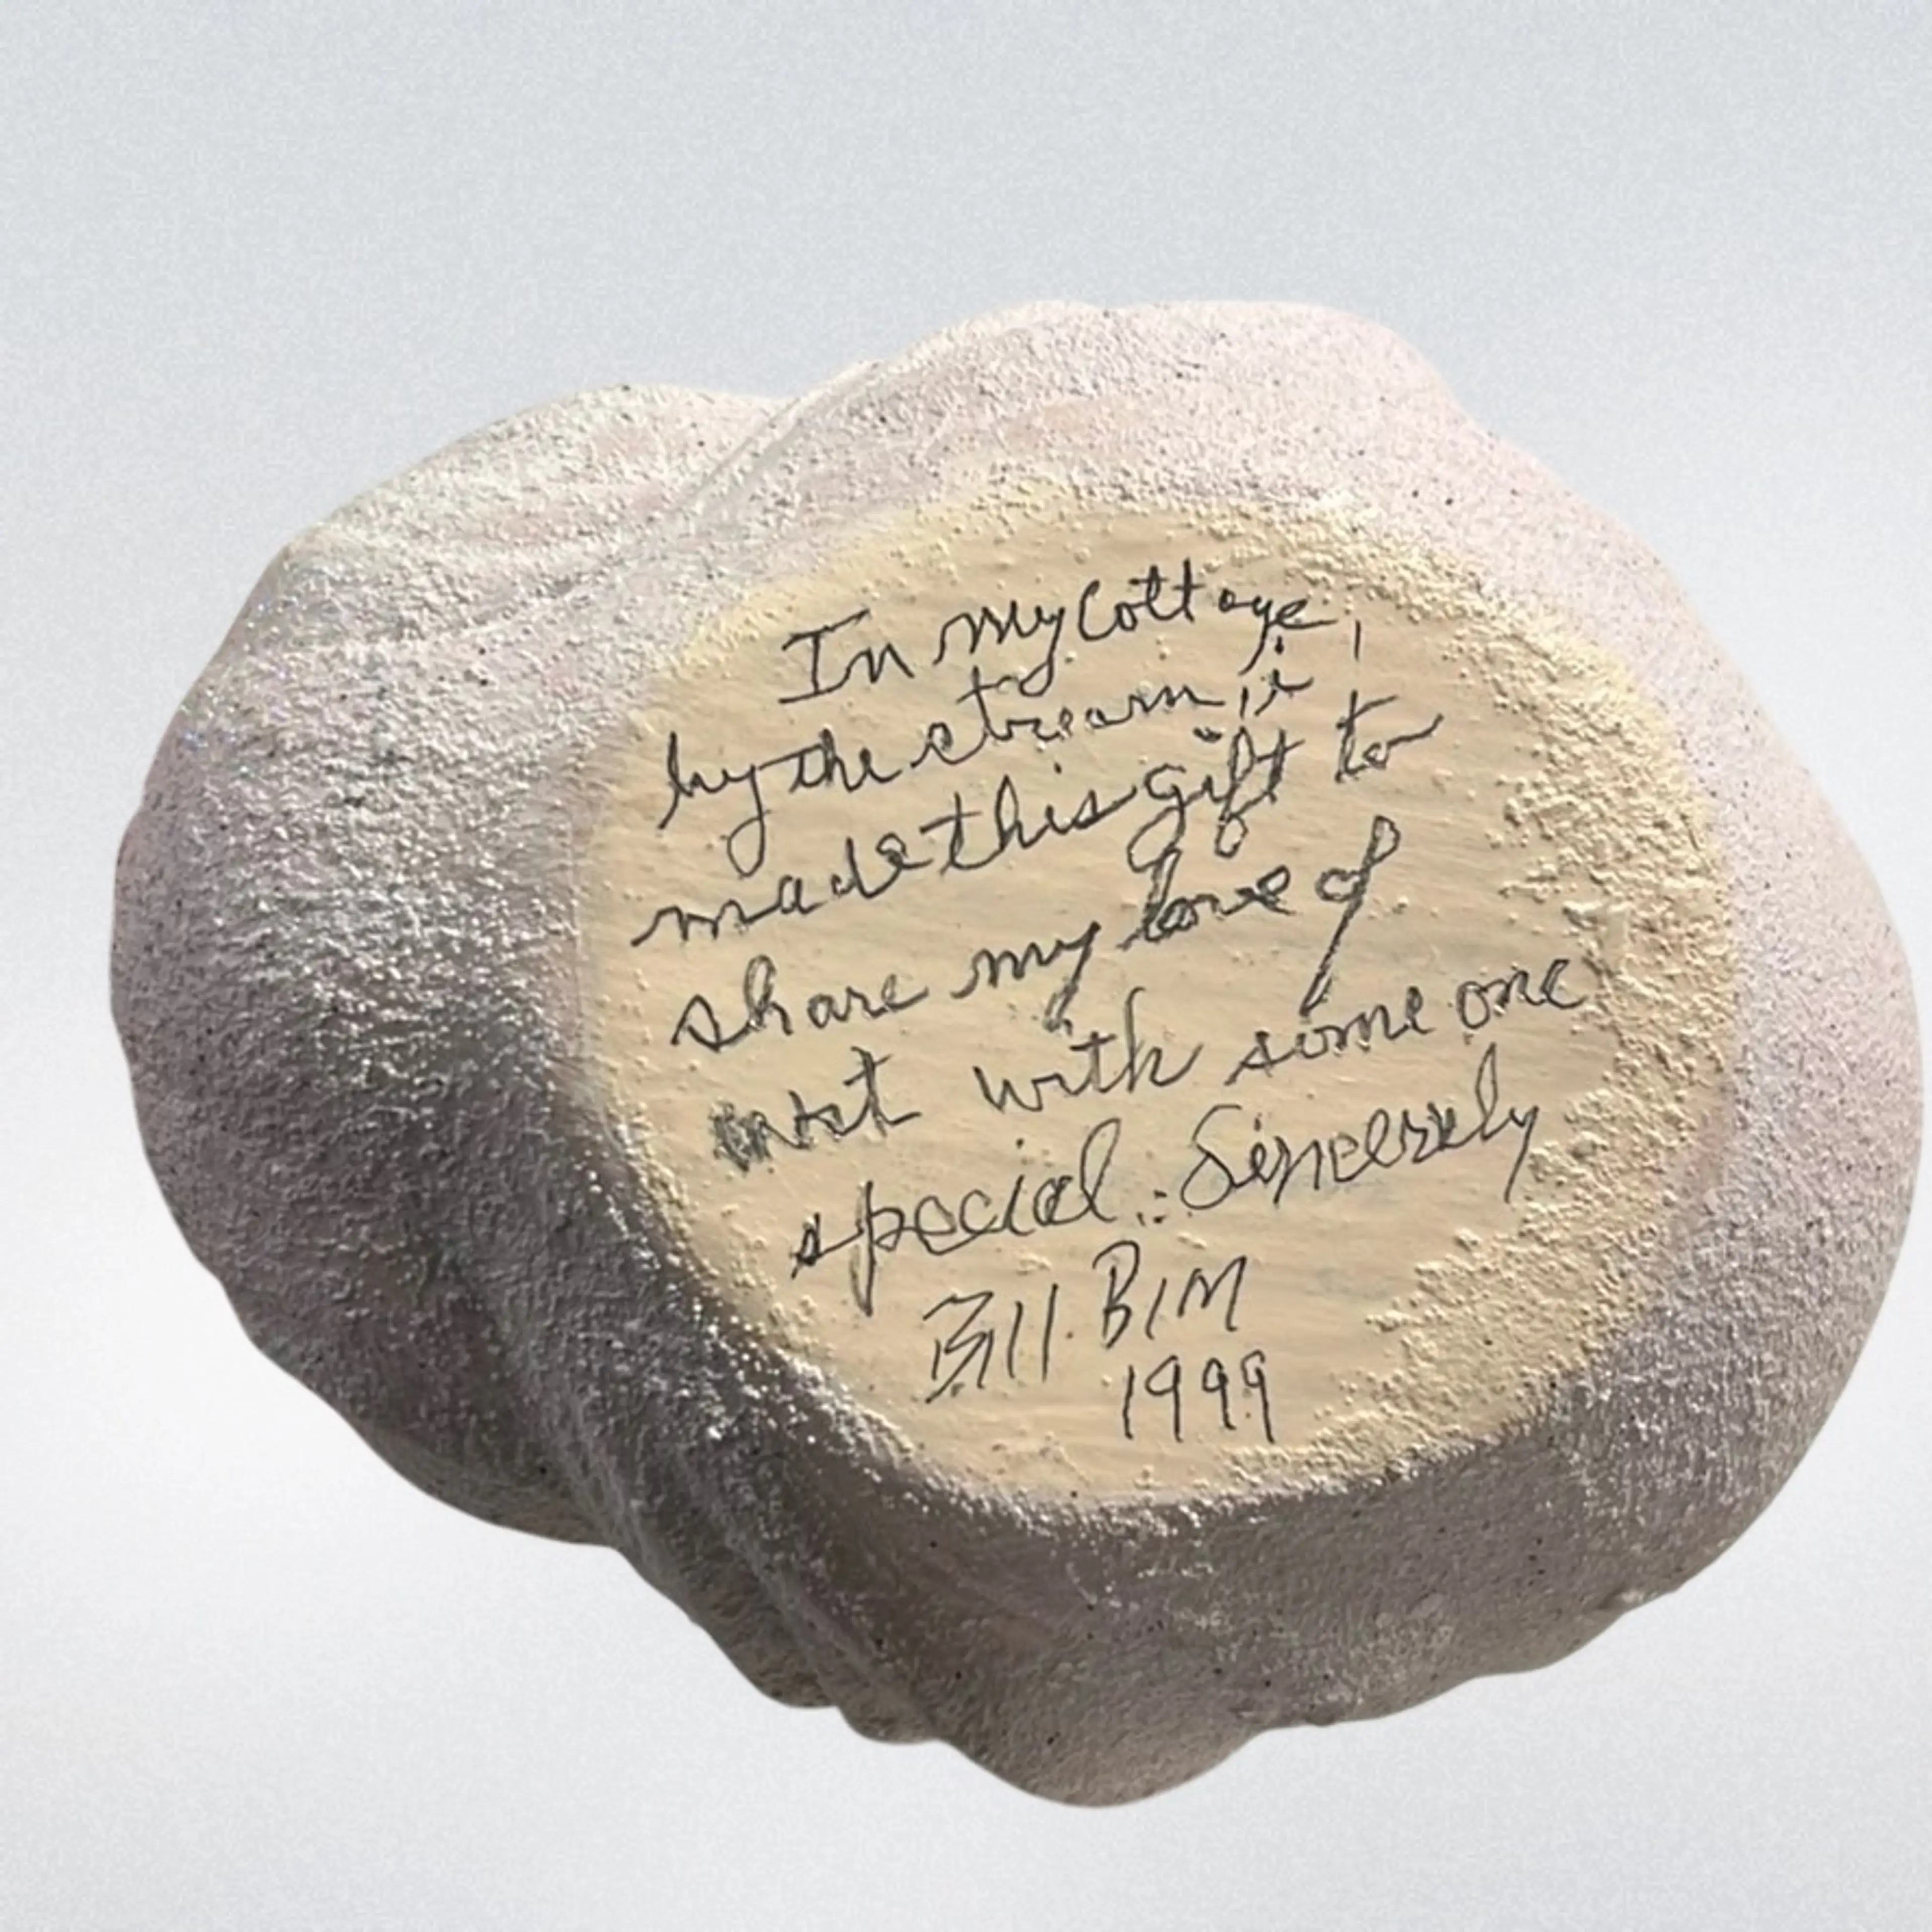 In My Cottage
by the stream, i
made this gift to
share my love of
with some one
special. Sincerely
Bill Bim
1999